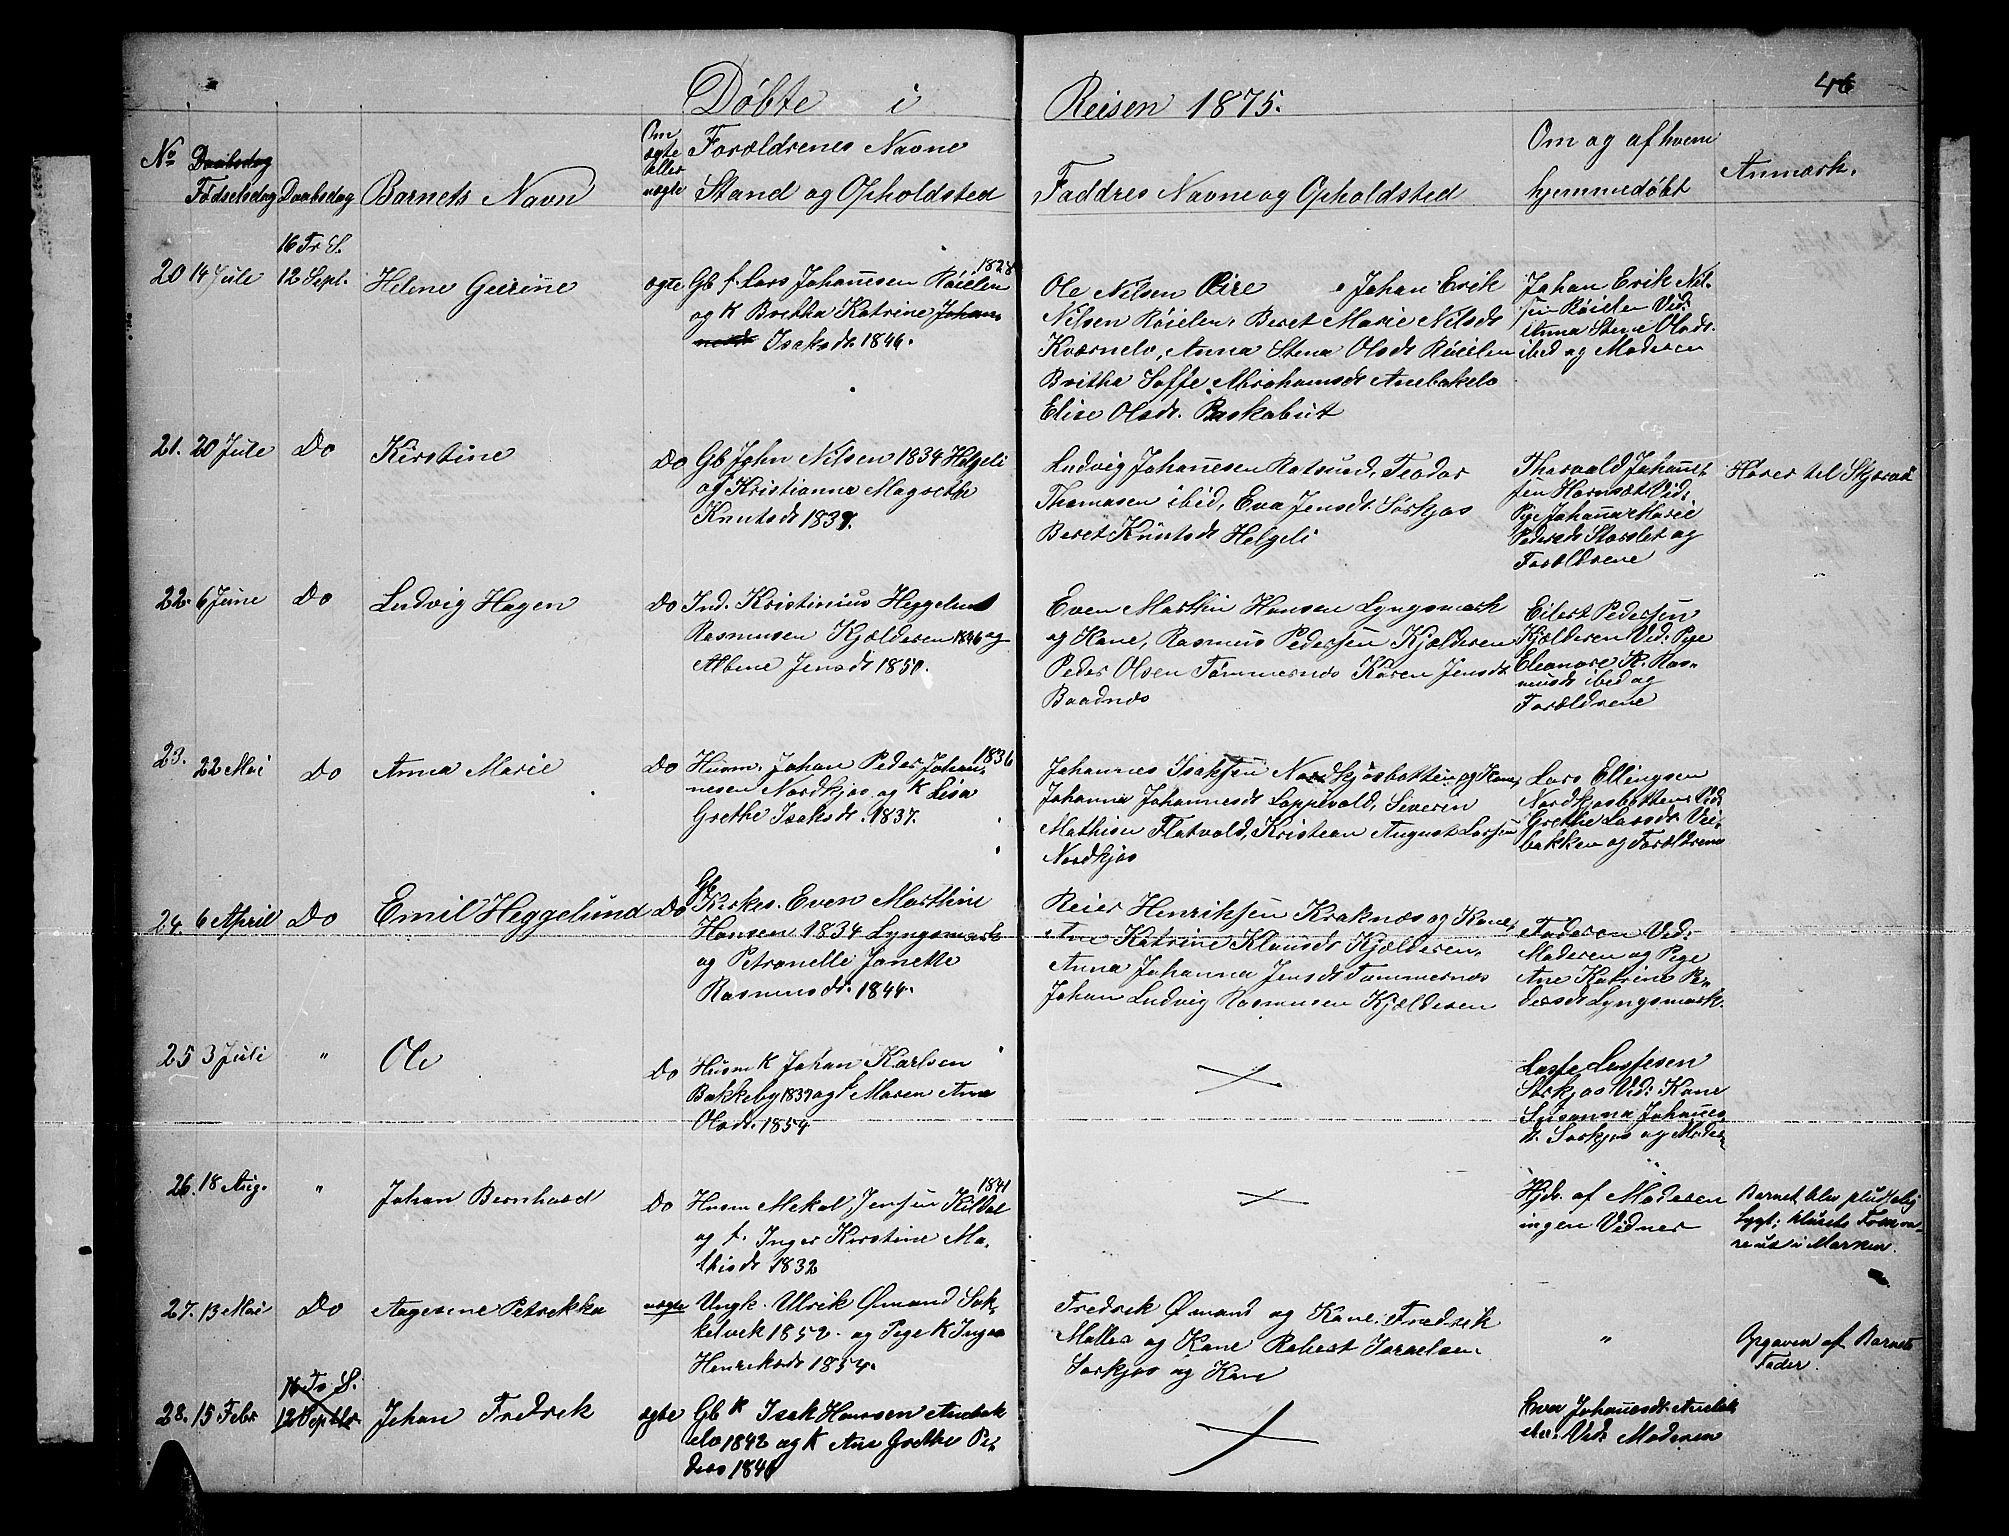 46
Døbte i Reisen 1875.
No
Daabsdag
Fødselsdag
Daabsdag
Barnets Navn
Om
ægte
eller
uægte
Forældrenes Navne
Stand og Opholdsted
Faddres Navne og Opholdsted
Om og af hvem
hjemmedøbt
Anmærk.
20
14 Jule
16 Tr S.
12 Sept.
Helene Gurine
ægte
Gb f. Lars Johannesen Røielen 1828
og K Bretha Katrine Johan-
nesdr Isaksdr 1846.
Ole Nilsen Eire Johan Erik
Nilsen Røielen, Beret Marie Nilsdr
Kværnelv, Anna Stena Olsdr Røielen
Britha Soffe Abrahamsdr Anebakelv
Elise Olsdr. Baskabut
Johan Erik Nil-
sen Røielen Vid:
Anna Stene Olsdr.
ibid og Moderen
21.
20 Jule
Do
Kirstine
Do
Gb John Nilsen 1834 Helgeli
og Kristianna Magrethe
Knutsdr 1839.
Ludvig Johannesen Rotsund, Teodor
Thomasen ibid, Eva Jensdr. Sørkjos
Beret Knutsdr Helgeli
Thorvald Johannes
sen Hamnæt Vid:
Pige Johanna Marie
Pedersdr Storslet og
Forældrene
Hører til Skjervø
22.
6 June
Do
Ludvig Hagen
Do
Ind. Kristinius Heggelund
Rasmusen Kjælderen 1846 og
Albine Jensdr 1850.
Even Marthin Hansen Lyngsmark
og Kane, Rasmus Pedersen Kjælderen
Peder Olsen Tømmernes Karen Jensdr
Baadnes
Eilert Pedersen
Kjælderen Vid: Pige
Eleanore K. Ras-
musdr ibid og
Forældrene
23.
22 Mai
Do
Anna Marie
Do
Husm. Johan Peder Johan- 1836
nesen Nordkjos og K Lisa
Grethe Isaksdr. 1837.
Johannes Isaksen Nordkjosbotten og Kane,
Johanna Johannesdr Loppevold, Severin
Mathisen Flatvold, Kristian August Larsen
Nordkjos
Lars Ellingsen
Nordkjosbotten Vid:
Grethe Larsdr Vei-
bakken og Forældrene
24.
6 April
Do
Emil Heggelund
Do
Gb
Kirkes. Even Marthin
Hansen 1834 Lyngsmark
og Petronelle Janette
Rasmusdr. 1844.
Reier Henriksen Kraknes og Kane,
Ane Katrine Klausdr Kjælderen.
Anna Johanna Jensdr Tømmernes
Johan Ludvig Rasmusen Kjælderen
Faderen Vid:
Moderen og Pige
Ane Katrine Pe-
dersdr Lyngsmark.
25
3 Juli
"
Ole
Do
Husm K Johan Karlsen
Bakkeby 1837 og f Maren Ane
Olsdr. 1854
Lasse Lassesen
Sørkjos Vid: Kane
Susanna Johannes
dr. Sørkjos og Moder
26.
18 Aug.
"
Johan Bernhard
Do
Husm Mekal Jensen Kildal 1841
og f. Inger Kirstine Ma-
thisdr 1832
Hjdr. af Moderen
ingen Vidner
Barnet blev pludselig
sygt;
i Marken.
27.
13 Mai
Do
Aagesine Petrekka
uægte
Ungk. Ulrik Ømand Sok-
kelvik 1852. og Pige K Inger
Henriksdr 1854.
Fredrik Ømand og Kane, Fredrik
Møller og Kane Robert Isralsen
Sørkjos og Kane
"
Opgaven af Barnets
Fader.
28.
15 Febr
16 Tr S.
12 Septbr
Johan Fredrik
ægte
Gb K Isak Hansen Anebak
elv 1842 og K Ane Grethe Pe-
dersdr 1840
Eva Johannesdr. Anebak
elv. Vid: Moderen